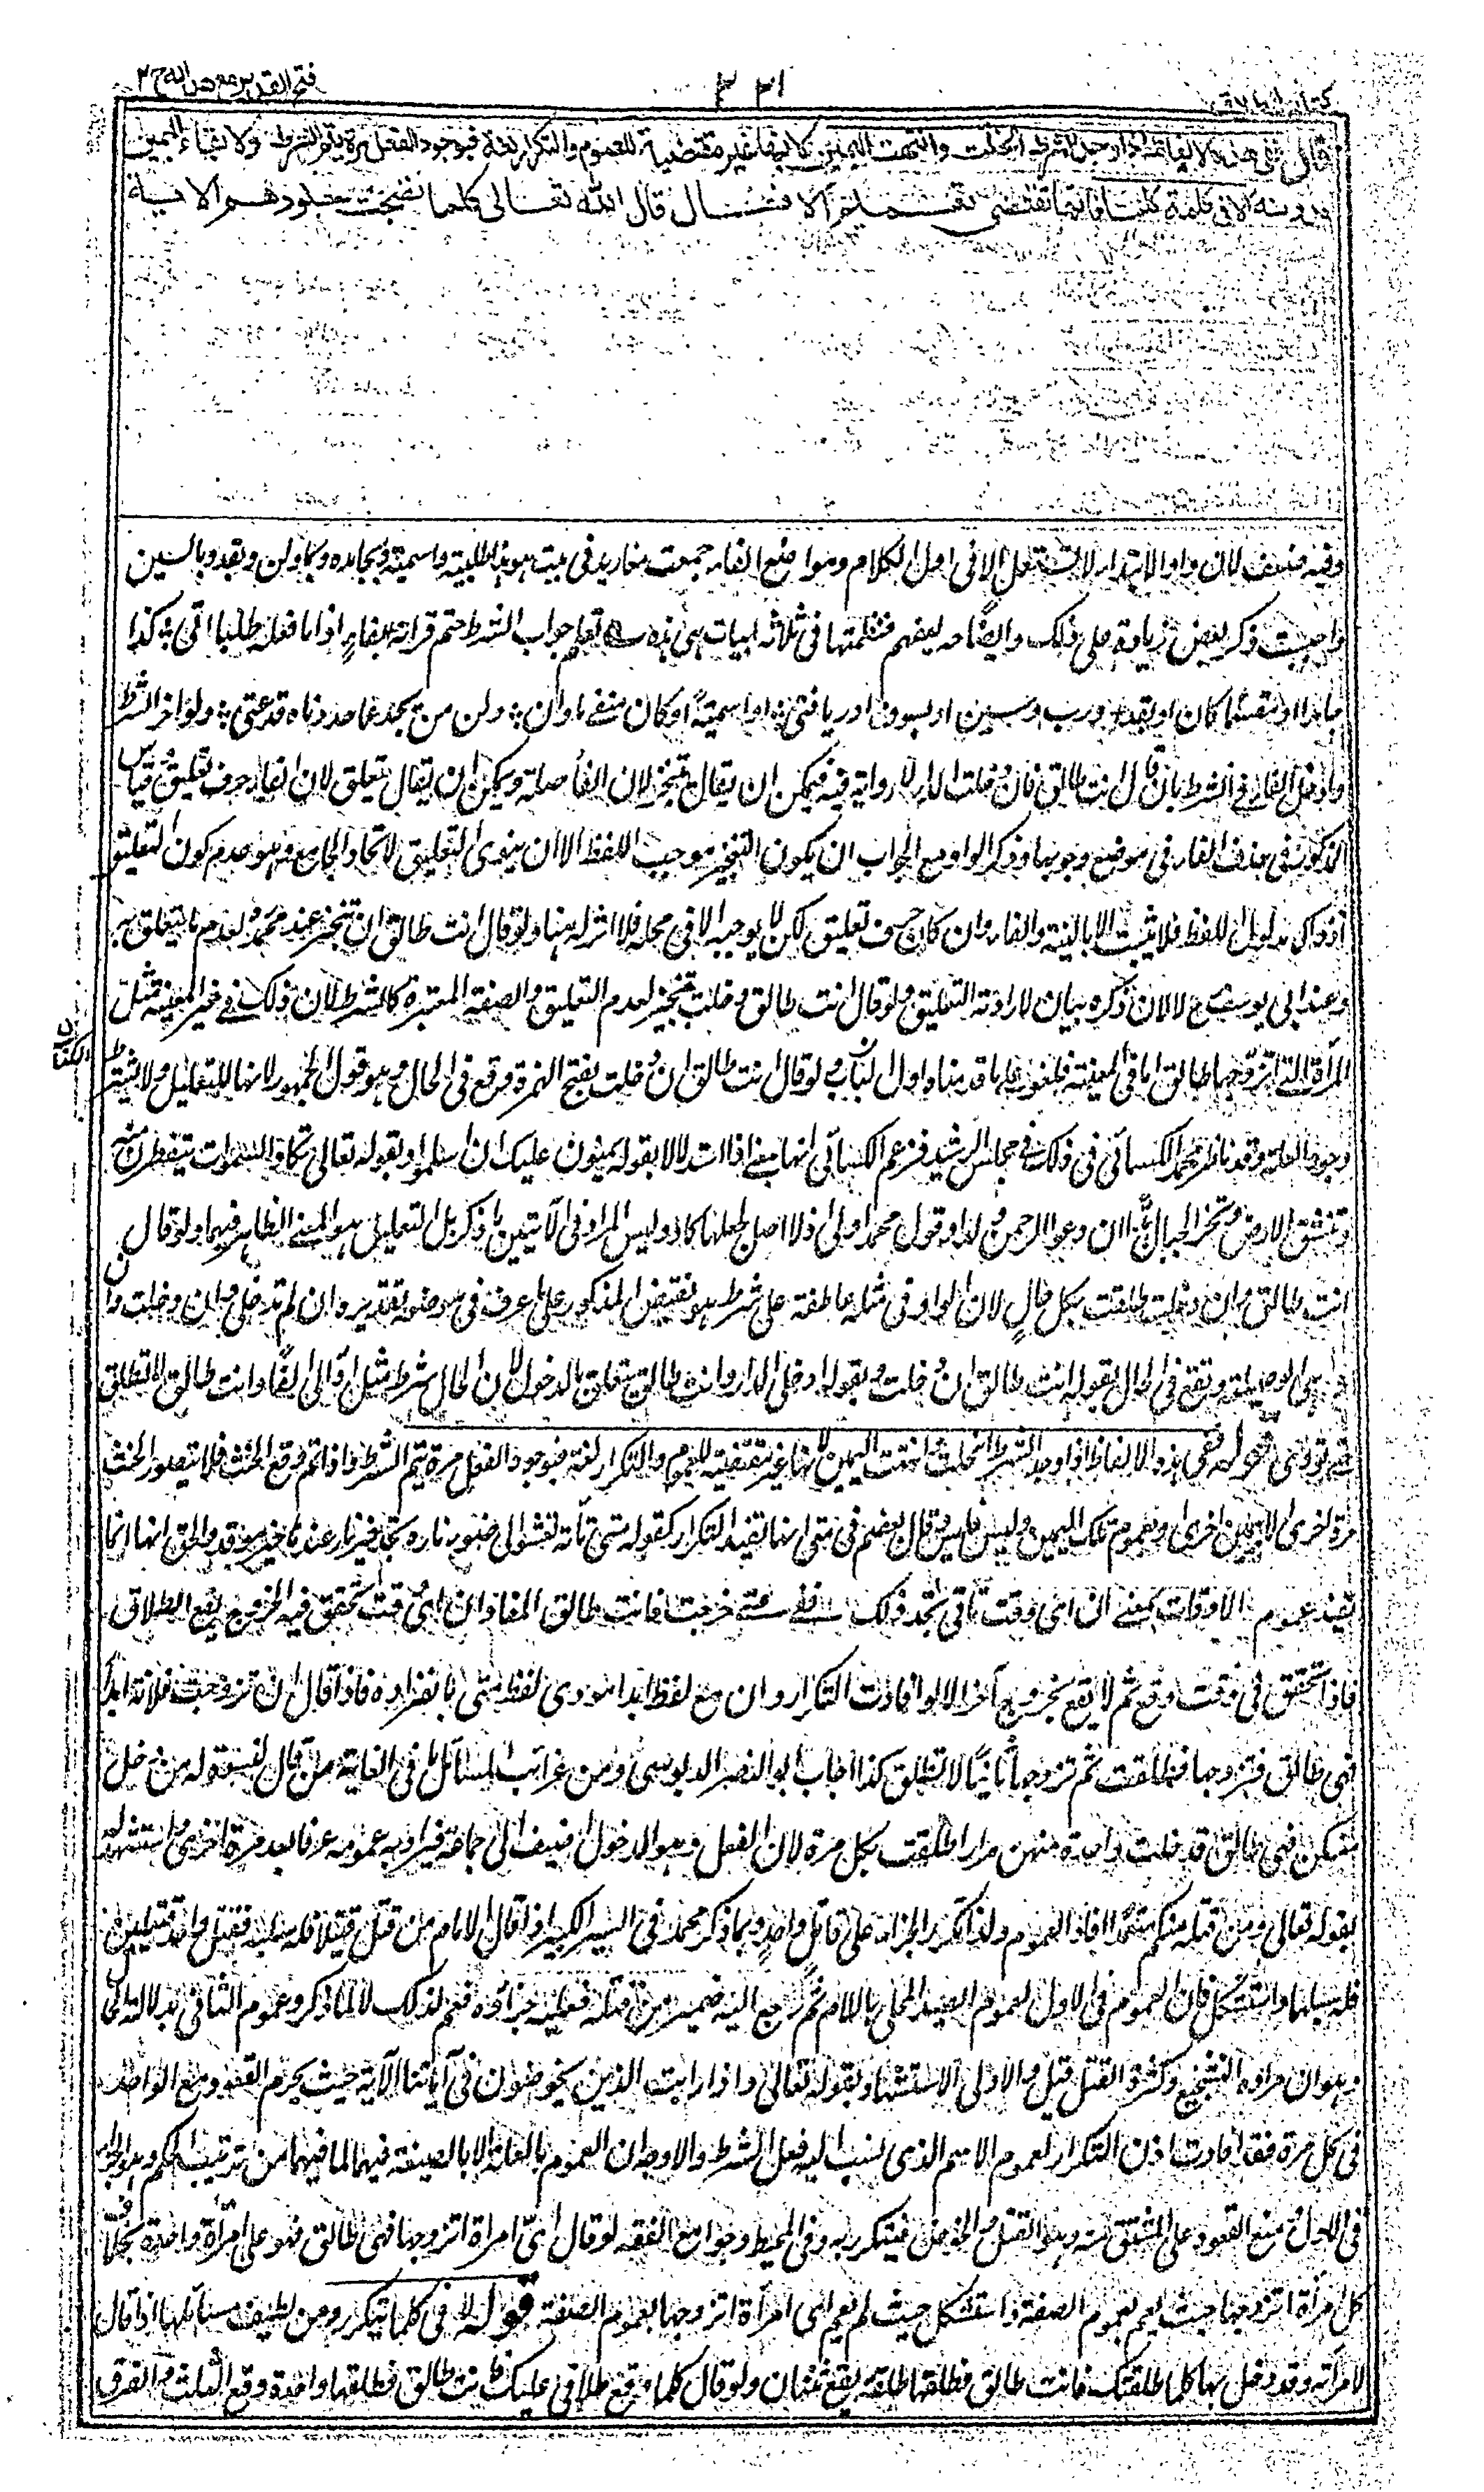 فتح القدير مع هدايه ج ٢
٢٢١
كتاب الطلاق
ففي هذه الالفاظ اذا وجد الشرط انحلت وانتهت اليمين لانها غير مقتضية للعموم والتكرار لغة فبوجود الفعل مرة يتم الشرط ولا بقاء لليمين
بدونه الا في كلمة كلما فانها تقتضي تعميم الافعال قال الله تعالى كلما نضجت جلودهم الاية
وفيه ضعف لان واو الابتداء لا تستعمل الا في اول الكلام ومواضع الفاء جمعت متفاريد في بيت هو طلبية واسمية وبجامد وبما ولن وبقد وبالسين
واحببت ذكر بعض زيادة على ذلك وايضاحه ليفهم فنظمتها في ثلاثة ابيات هي هذه تعلم جواب الشرط حتم قرانه بفاء اذا ما فعله طلبا اتى كذا
جامدا او مقسما كان او بقد ورب وسين او بسوف ادر يا فتى او اسمية او كان منفي ما وان ولن من يحد عما حددناه قد عتى ولو اخر الشرط
وادخل الفاء في الشرط بان قال انت طالق فان دخلت الدار لا رواية فيه فيمكن ان يقال يتنجز لان الفاء فاصلة ويمكن ان يقال يتعلق لان الفاء حرف تعليق وقياس
المذكور في حذف الفاء في موضع وجوبها وذكر الواو مع الجواب ان يكون التنجيز موجب اللفظ الا ان ينوي التعليق لاتحاد الجامع وهو عدم كون التعليق
اذ ذاك مدلول اللفظ فلا يثبت الا بالنية والفاء وان كان حرف تعليق لكن لا يوجبه الا في محله فلا اثر له هنا ولو قال انت طالق ان تنجز عند محمد لعدم ما يتعلق به
وعند ابي يوسف لا لان ذكره بيان لارادته التعليق ولو قال انت طالق دخلت تنجيز لعدم التعليق والصفة المعتبرة كالشرط لان ذلك في غير المعينة مثل
المرأة التي اتزوجها طالق اما في المعينة فلغو على ما قدمناه اول الباب ولو قال انت طالق ان دخلت بفتح الهمزة وقع في الحال وهو قول الجمهور لانها للتعليل ولا يشترط
وجود العلة وقد ناظر محمد الكسائي في ذلك في مجلس الرشيد فزعم الكسائي انها بمعنى اذا استدلالا بقوله يمنون عليك ان اسلموا وبقوله تعالى تكاد السموات يتفطرن منه
وتنشق الارض وتخر الجبال هدا ان دعوا للرحمن ولدا وقول محمد اولى اذ لا اصل لجعلها كاذ وليس المراد في الآيتين ما ذكر بل التعليل هو المعنى الظاهر فيهما ولو قال
انت طالق وان دخلت طلقت بكل حال لان الواو في مثله عاطفة على شرط هو نقيض المذكور على ما عرف في موضعه تقديره ان لم تدخلي وان دخلت وان
هذه هي الوصلية وتقع في الحال بقوله انت طالق ان دخلت وبقوله ادخلي الدار وانت طالق يتعلق بالدخول لان الحال شرط مثل ادي الي الفا وانت طالق لا تطلق
حتى تؤدي قوله ففي هذه الالفاظ اذا وجد الشرط انحلت وانتهت اليمين لانها غير مقتضية للعموم والتكرار لغة فبوجود الفعل مرة يتم الشرط واذا تم وقع الحنث فلا يتصور الحنث
مرة اخرى الا بيمين اخرى او بعموم تلك اليمين وليس فليس وقال بعضهم في متى انها تفيد التكرار كقوله متى تأته تعشو الى ضوء ناره تجد خير نار عندها خير موقد والحق انها انما
تفيد عموم الاوقات بمعنى ان اي وقت تأتي تجد ذلك ففي متى خرجت فانت طالق المفاد ان اي وقت تحقق فيه الخروج يقع الطلاق
فاذا تحقق في وقت وقع ثم لا يقع بخروج آخر الا لو افادت التكرار وان مع لفظ ابدا مؤدي لفظ متى بانفراده فاذا قال ان تزوجت فلانة ابدا
فهي طالق فتزوجها فطلقت ثم تزوجها ثانيا لا تطلق كذا اجاب ابو النصر الدبوسي ومن غرائب المسائل في الغاية من قال لنسوة له من دخل
منكن فهي طالق فدخلت واحدة منهن مرارا طلقت بكل مرة لان الفعل وهو الدخول اضيف الى جماعة فيراد به عمومه عرفا بعد مرة اخرى واستشهد
بقوله تعالى ومن قتله منكم متعمدا افاد العموم ولذا تكرر الجزاء على قاتل واحد وبما ذكر محمد في السير الكبير اذا قال الامام من قتل قتيلا فله سلبه فقتل واحد قتيلين
فله سلبهما واستشكل فان العموم في الاول لعموم الصيد المحلى باللام ثم رجع اليه ضمير من قتله فعليه جزاؤه فعم لذلك لا لما ذكر وعموم الثاني بدلالة الحال
وهو ان مراده التشجيع وكثرة القتل قيل والاولى الاستشهاد بقوله تعالى واذا رايت الذين يخوضون في آياتنا الآية حيث يحرم القعود مع الواحد
في كل مرة فقد افادت اذن التكرار لعموم الاسم الذي نسب اليه فعل الشرط والاوجه ان العموم بالعلة لا بالصيغة فيهما لما فيهما من ترتيب الحكم وهو الجزاء
في الاول ومنع القعود على المشتق منه وهو القتل والخوض فيتكرر به وفي المحيط وجوامع الفقه لو قال اي امرأة اتزوجها فهي طالق فهو على امرأة واحدة بخلاف
كل امرأة اتزوجها حيث يعم بعموم الصفة واستشكل حيث لم يعم اي امرأة اتزوجها بعموم الصفة قوله الا في كلما يتكرر ومن لطيف مسائلها اذا قال
لامرأته وقد دخل بها كلما طلقتك فانت طالق فطلقها طلقة يقع ثنتان ولو قال كلما وقع طلاقي عليك فانت طالق فطلقها واحدة وقع الثلث والفرق